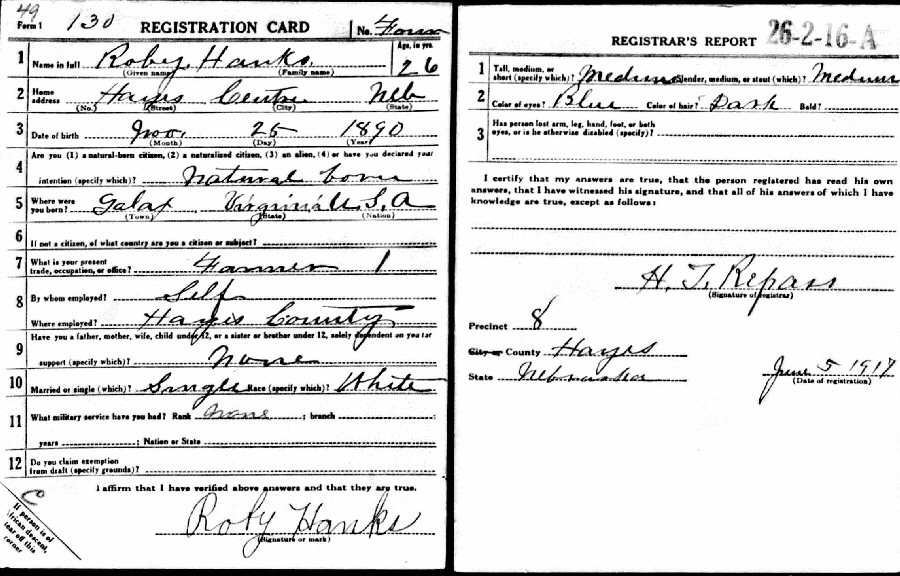 49
Form 1 130 REGISTRATION CARD No. Four
1 Name in full Roby Hanks. Age, in yrs. 26
(Given name) (Family name)
2 Home address Hayes Centre Neb
(No.) (Street) (City) (State)
3 Date of birth Nov. 25 1890
(Month) (Day) (Year)
Are you (1) a natural-born citizen, (2) a naturalized citizen, (3) an alien, (4) or have you declared your
4 intention (specify which)? Natural born
5 Where were you born? Galax Virginia U.S.A
(Town) (State) (Nation)
6 If not a citizen, of what country are you a citizen or subject?
7 What is your present trade, occupation, or office? Farmer 1
8 By whom employed? Self
Where employed? Hayes County
Have you a father, mother, wife, child under 12, or a sister or brother under 12, solely dependent on you for
9 support (specify which)? None
10 Married or single (which)? Single Race (specify which)? White
11 What military service have you had? Rank None ; branch ;
years ; Nation or State
12 Do you claim exemption from draft (specify grounds)?
I affirm that I have verified above answers and that they are true.
Roby Hanks
(Signature or mark)
If person is of
African descent,
tear off this
corner
REGISTRAR'S REPORT 26-2-16-A
1 Tall, medium, or short (specify which)? Medium Slender, medium, or stout (which)? Medium
2 Color of eyes? Blue Color of hair? Dark Bald?
3 Has person lost arm, leg, hand, foot, or both eyes, or is he otherwise disabled (specify)?
I certify that my answers are true, that the person registered has read his own
answers, that I have witnessed his signature, and that all of his answers of which I have
knowledge are true, except as follows:
H. T. Repass
(Signature of registrar)
Precinct 8
City or County Hayes
State Nebraska June 5 1917
(Date of registration)